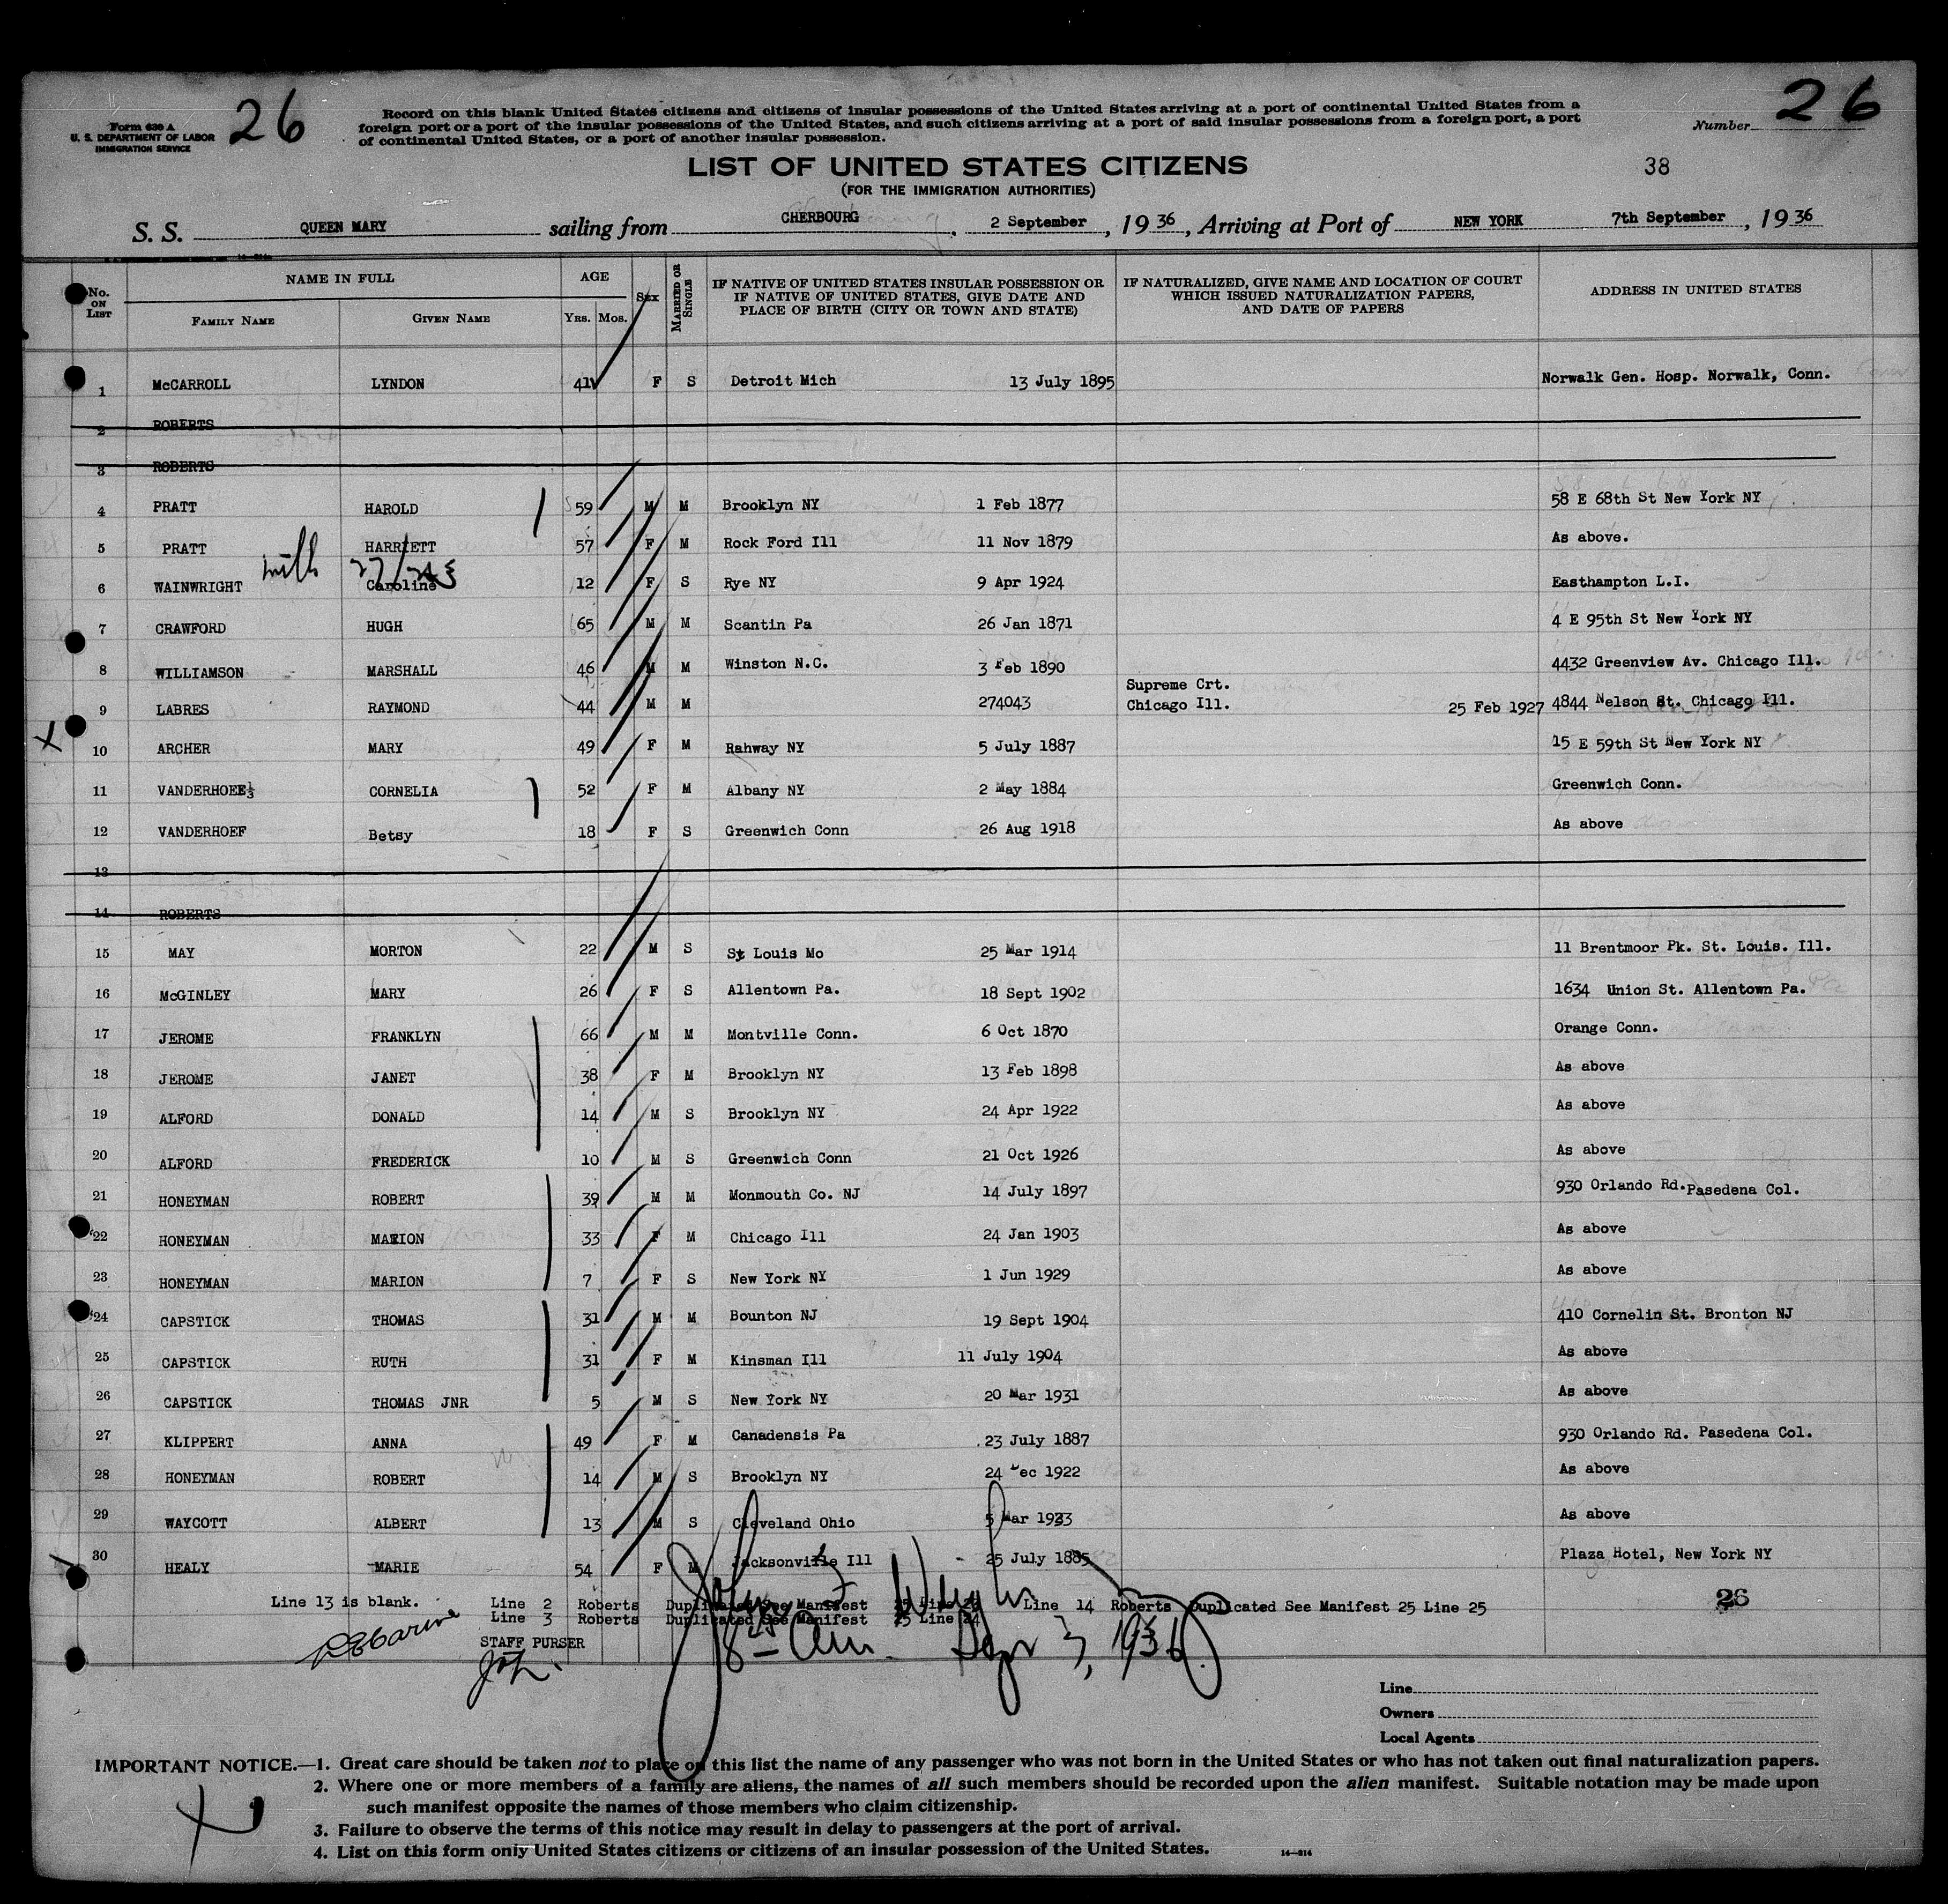 Form 630 A
U. S. DEPARTMENT OF LABOR
IMMIGRATION SERVICE
26
Record on this blank United States citizens and citizens of insular possessions of the United States arriving at a port of continental United States from a
foreign port or a port of the insular possessions of the United States, and such citizens arriving at a port of said insular possessions from a foreign port, a port
of continental United States, or a port of another insular possession.
Number 26
LIST OF UNITED STATES CITIZENS
38
(FOR THE IMMIGRATION AUTHORITIES)
S. S. QUEEN MARY sailing from CHERBOURG, 2 September, 1936, Arriving at Port of NEW YORK 7th September, 1936
No. ON LIST NAME IN FULL FAMILY NAME GIVEN NAME AGE YRS. MOS. SEX MARRIED OR SINGLE IF NATIVE OF UNITED STATES INSULAR POSSESSION OR IF NATIVE OF UNITED STATES, GIVE DATE AND PLACE OF BIRTH (CITY OR TOWN AND STATE) IF NATURALIZED, GIVE NAME AND LOCATION OF COURT WHICH ISSUED NATURALIZATION PAPERS, AND DATE OF PAPERS ADDRESS IN UNITED STATES
1 McCARROLL LYNDON 41 F S Detroit Mich 13 July 1895 Norwalk Gen. Hosp. Norwalk, Conn.
2 ROBERTS
3 ROBERTS
4 PRATT HAROLD 59 M M Brooklyn NY 1 Feb 1877 58 E 68th St New York NY
5 PRATT HARRIETT 57 F M Rock Ford Ill 11 Nov 1879 As above.
with
6 WAINWRIGHT Caroline 12 F S Rye NY 9 Apr 1924 Easthampton L.I.
7 CRAWFORD HUGH 65 M M Scantin Pa 26 Jan 1871 4 E 95th St New York NY
8 WILLIAMSON MARSHALL 46 M M Winston N.C. 3 Feb 1890 4432 Greenview Av. Chicago Ill.
9 LABRES RAYMOND 44 M M 274043 Supreme Crt. Chicago Ill. 25 Feb 1927 4844 Nelson St. Chicago Ill.
10 ARCHER MARY 49 F M Rahway NY 5 July 1887 15 E 59th St New York NY
11 VANDERHOEF CORNELIA 52 F M Albany NY 2 May 1884 Greenwich Conn.
12 VANDERHOEF Betsy 18 F S Greenwich Conn 26 Aug 1918 As above
13
14 ROBERTS
15 MAY MORTON 22 M S St Louis Mo 25 Mar 1914 11 Brentmoor Pk. St. Louis. Ill.
16 McGINLEY MARY 26 F S Allentown Pa. 18 Sept 1902 1634 Union St. Allentown Pa.
17 JEROME FRANKLYN 66 M M Montville Conn. 6 Oct 1870 Orange Conn.
18 JEROME JANET 38 F M Brooklyn NY 13 Feb 1898 As above
19 ALFORD DONALD 14 M S Brooklyn NY 24 Apr 1922 As above
20 ALFORD FREDERICK 10 M S Greenwich Conn 21 Oct 1926 As above
21 HONEYMAN ROBERT 39 M M Monmouth Co. NJ 14 July 1897 930 Orlando Rd. Pasedena Col.
22 HONEYMAN MARION 33 F M Chicago Ill 24 Jan 1903 As above
23 HONEYMAN MARION 7 F S New York NY 1 Jun 1929 As above
24 CAPSTICK THOMAS 31 M M Bounton NJ 19 Sept 1904 410 Cornelin St. Bronton NJ
25 CAPSTICK RUTH 31 F M Kinsman Ill 11 July 1904 As above
26 CAPSTICK THOMAS JNR 5 M S New York NY 20 Mar 1931 As above
27 KLIPPERT ANNA 49 F M Canadensis Pa 23 July 1887 930 Orlando Rd. Pasedena Col.
28 HONEYMAN ROBERT 14 M S Brooklyn NY 24 Dec 1922 As above
29 WAYCOTT ALBERT 13 M S Cleveland Ohio 5 Mar 1923 As above
30 HEALY MARIE 54 F M Jacksonville Ill 25 July 1885 Plaza Hotel, New York NY
Line 13 is blank. Line 2 Roberts Duplicated See Manifest 25 Line Line 14 Roberts Duplicated See Manifest 25 Line 25
Line 3 Roberts Duplicated See Manifest 25 Line 24
26
STAFF PURSER
1936
Line
Owners
Local Agents
IMPORTANT NOTICE.—1. Great care should be taken not to place on this list the name of any passenger who was not born in the United States or who has not taken out final naturalization papers.
2. Where one or more members of a family are aliens, the names of all such members should be recorded upon the alien manifest. Suitable notation may be made upon
such manifest opposite the names of those members who claim citizenship.
3. Failure to observe the terms of this notice may result in delay to passengers at the port of arrival.
4. List on this form only United States citizens or citizens of an insular possession of the United States.
14—314